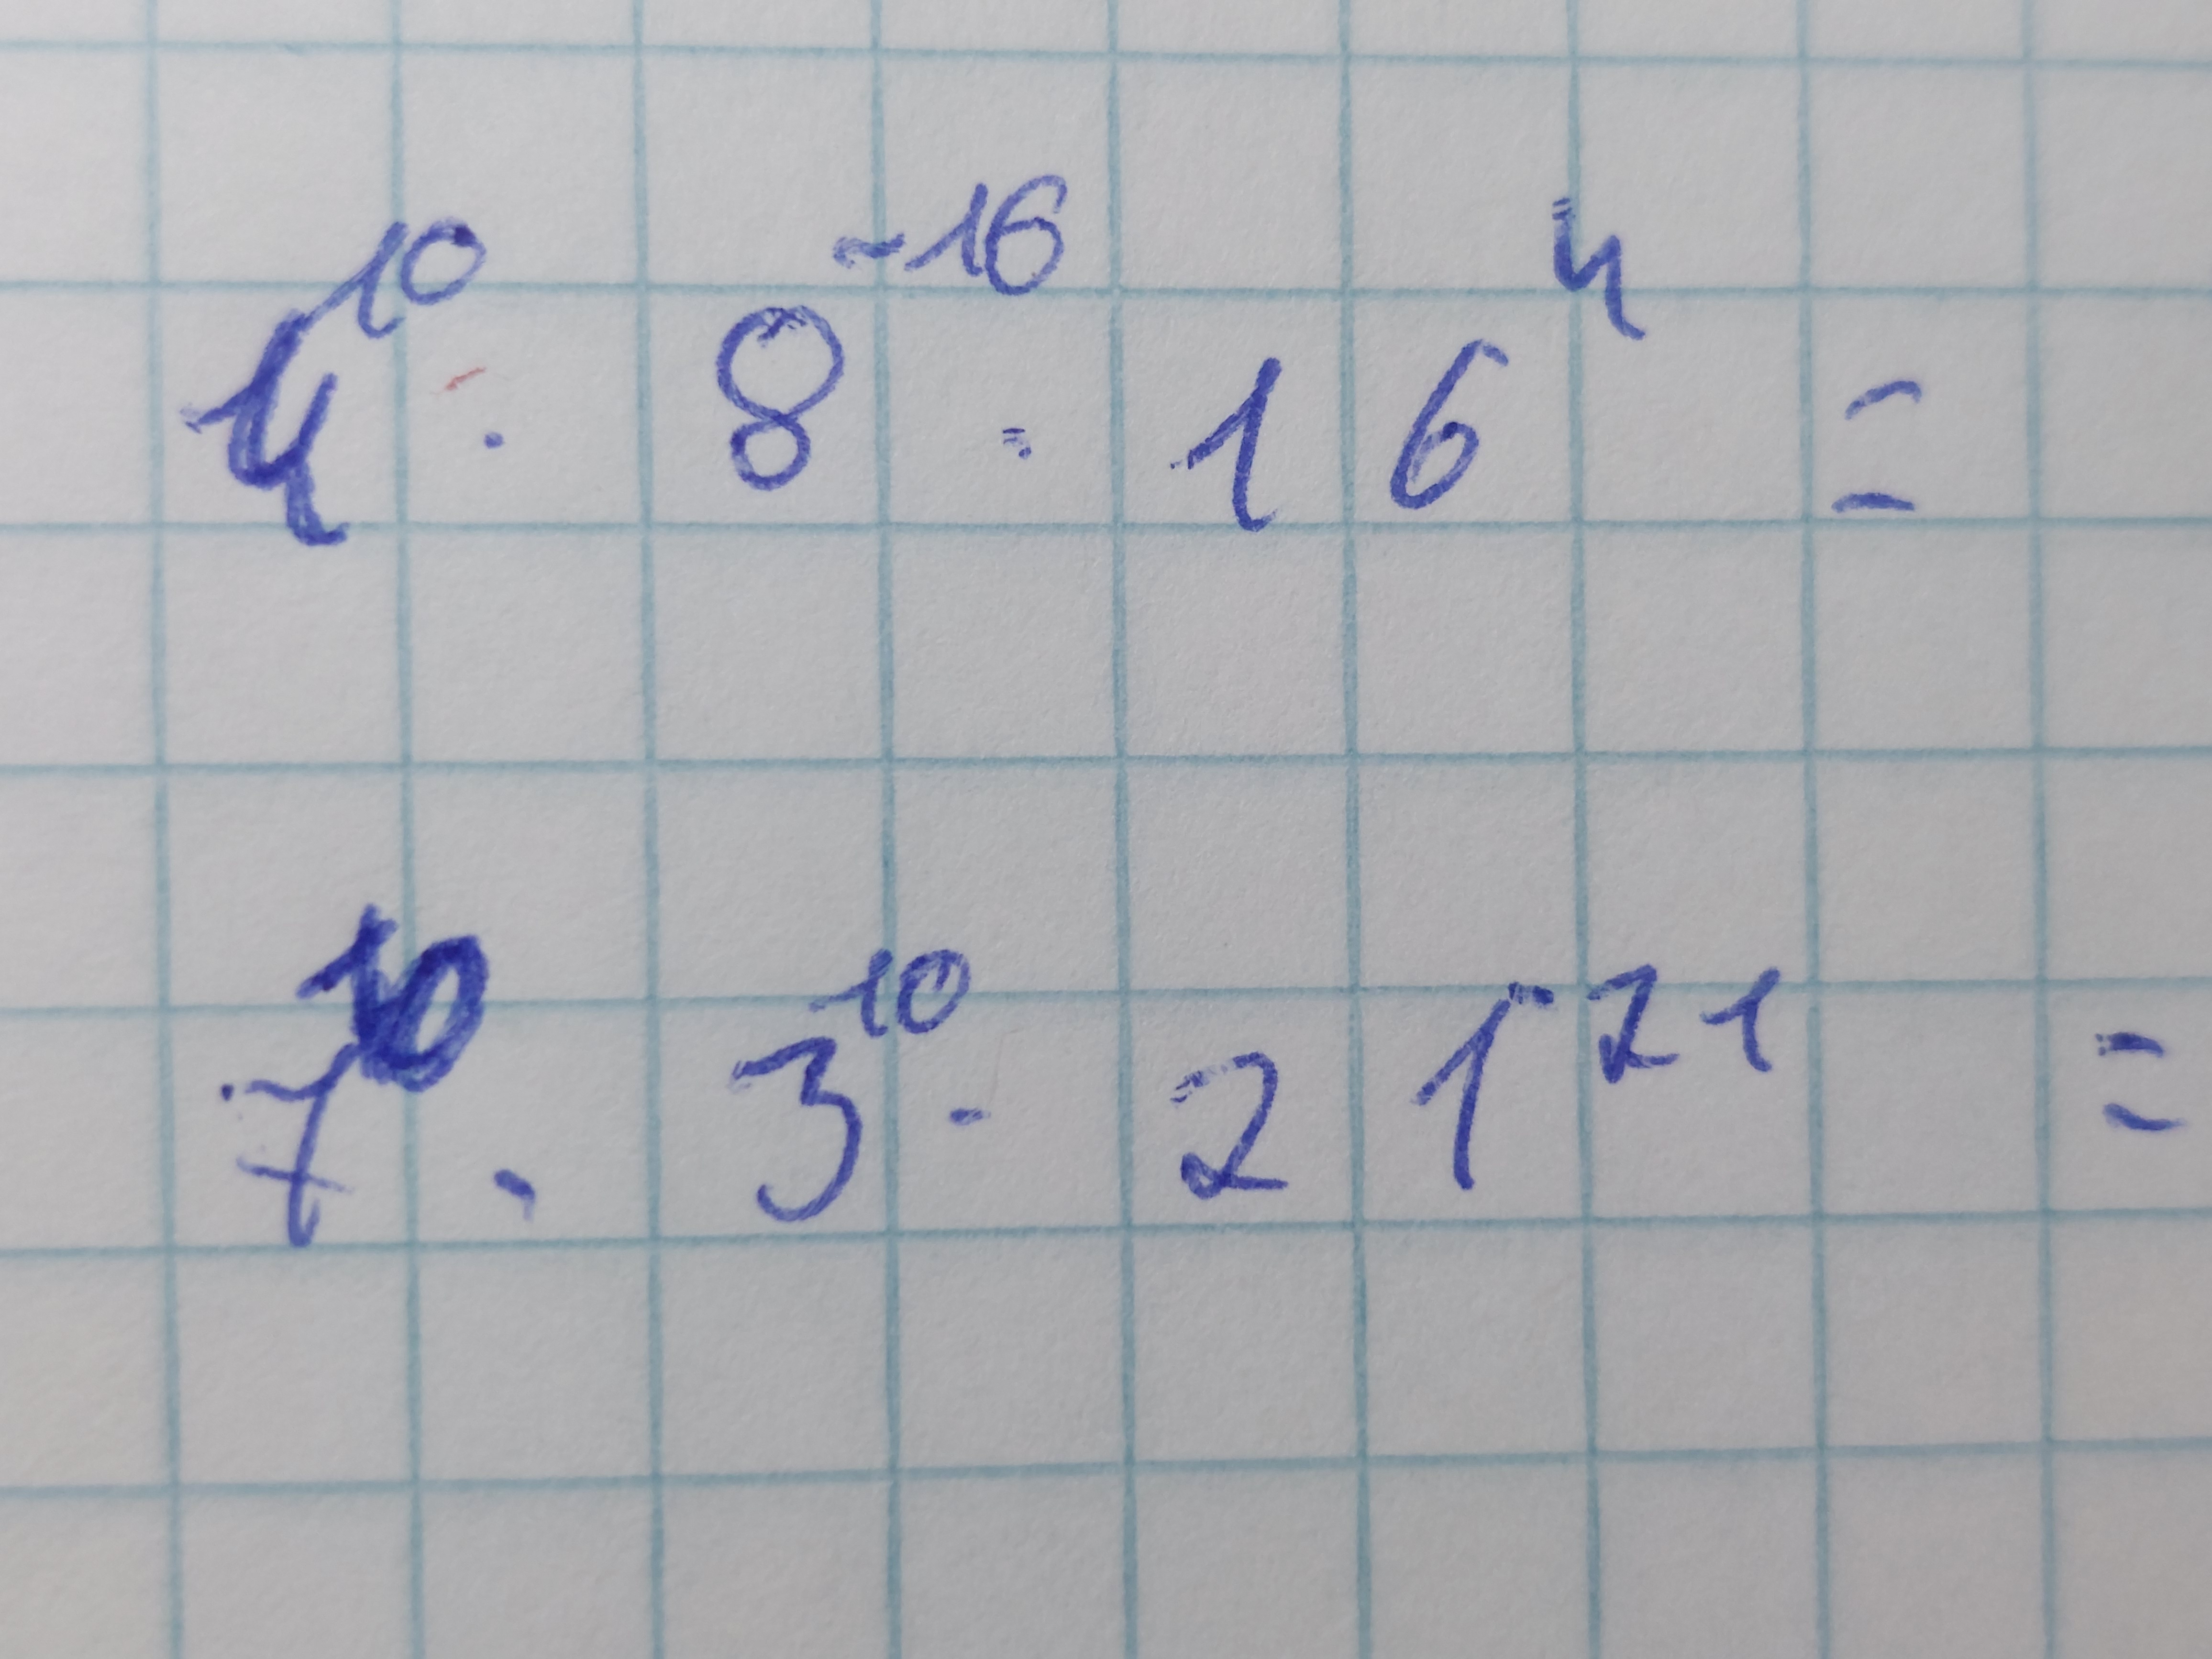 4¹⁰ · 8⁻¹⁶ · 16⁴ =
7¹⁰ · 3¹⁰ · 21⁻²¹ =